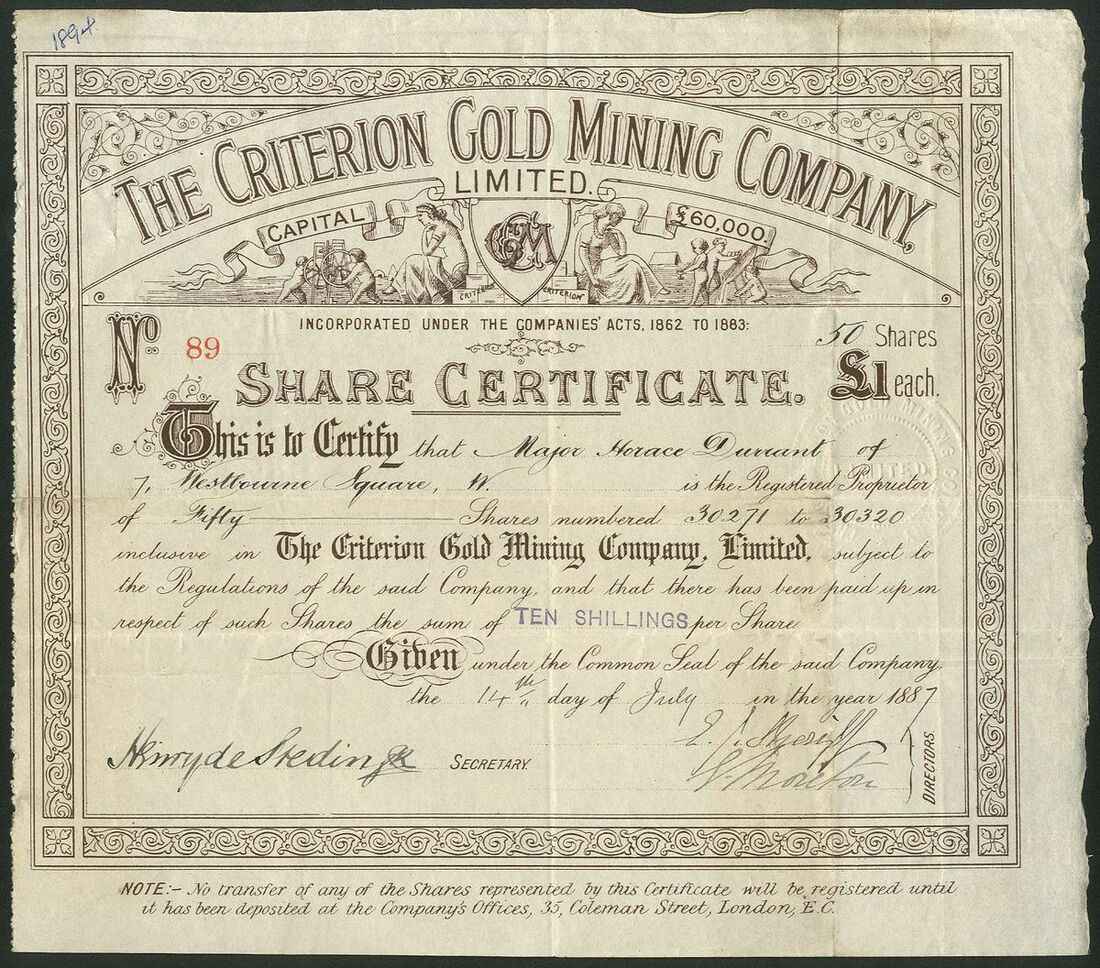 1894
THE CRITERION GOLD MINING COMPANY,
LIMITED.
CAPITAL £60,000.
CGM
CRITERION CRITERION
INCORPORATED UNDER THE COMPANIES' ACTS, 1862 TO 1883:
No. 89
50 Shares
£1 each.
SHARE CERTIFICATE.
This is to Certify that Major Horace Durrant of
7, Westbourne Square, W. is the Registered Proprietor
of Fifty Shares numbered 30271 to 30320
inclusive in The Criterion Gold Mining Company, Limited, subject to
the Regulations of the said Company, and that there has been paid up in
respect of such Shares the sum of TEN SHILLINGS per Share
Given under the Common Seal of the said Company,
the 14th day of July in the year 1887
Henry de SECRETARY.
DIRECTORS
NOTE:- No transfer of any of the Shares represented by this Certificate will be registered until
it has been deposited at the Company's Offices, 35, Coleman Street, London, E.C.